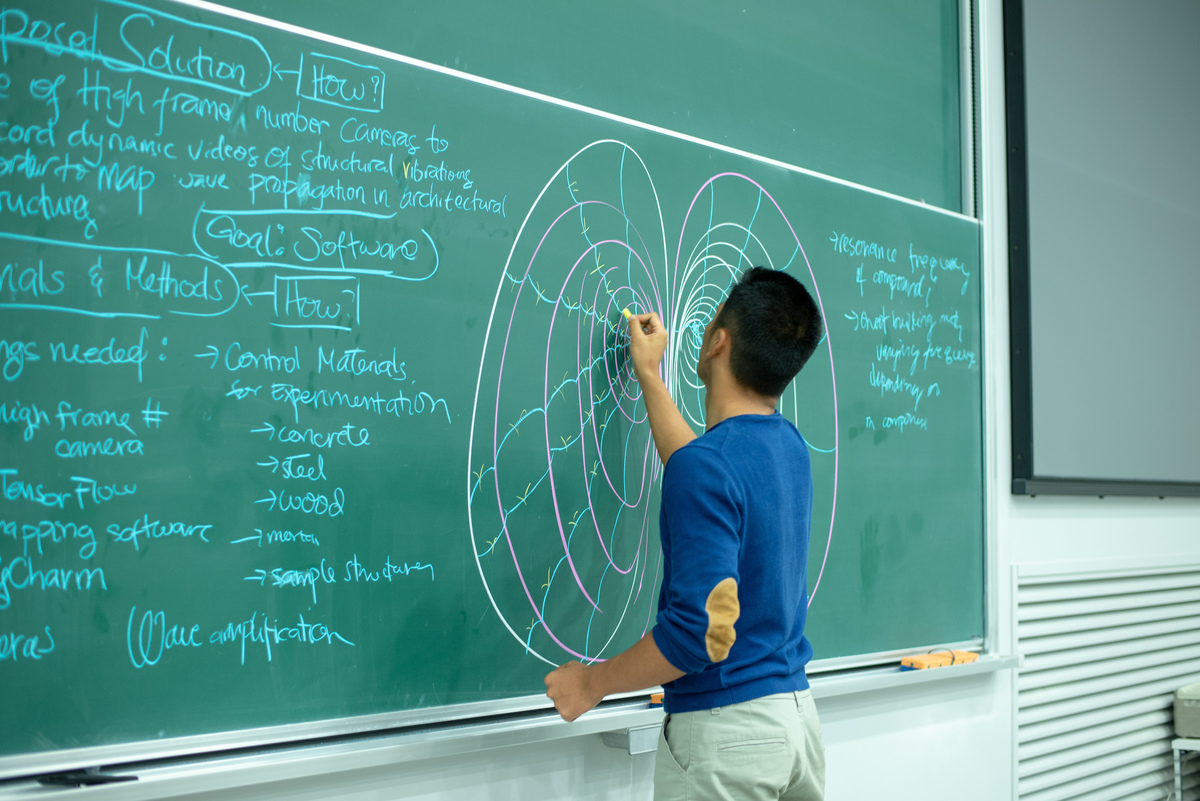 posed Solution ← How?
e of High frame number Cameras to
cord dynamic videos of structural vibrations
order to Map wave propagation in architectural
ructures
Goal: Software
rials & Methods ← How?
ngs needed: → Control Materials
for Experimentation
high frame #
camera
→ concrete
→ steel
→ wood
→
→ sample structures
TensorFlow
apping software
yCharm
eras
Wave amplification
→ resonance frequency
of compounds
→ building
varying
depending on